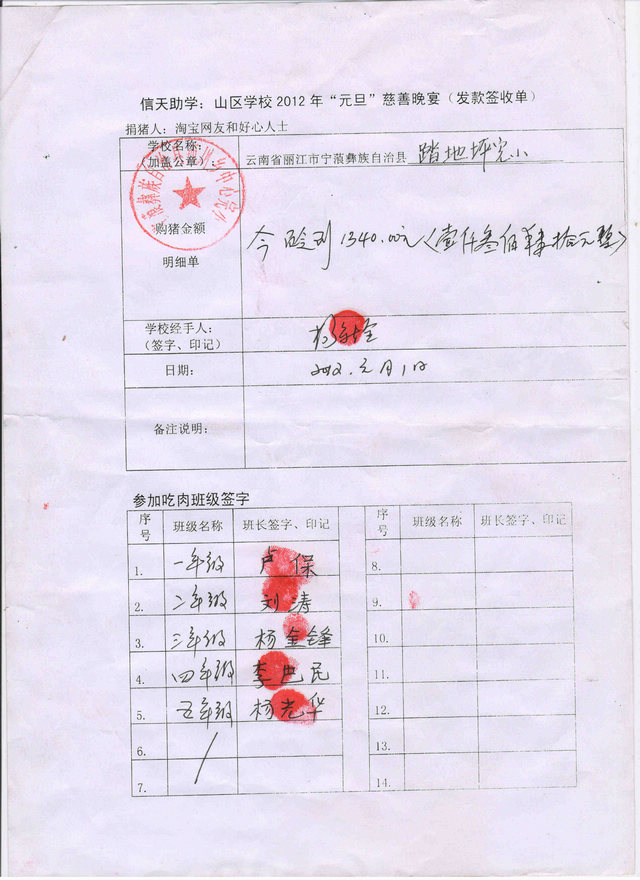 信天助学：山区学校2012年“元旦”慈善晚宴（发款签收单）
捐猪人：淘宝网友和好心人士
学校名称：
（加盖公章）：
云南省丽江市宁蒗彝族自治县 踏地坪完小
购猪金额
明细单
今 到1340.00元（壹仟叁佰肆拾元整）
学校经手人：
（签字、印记）
杨
日期：
2012.元月1日
备注说明：
参加吃肉班级签字
序号 班级名称 班长签字、印记
1. 一年级 卢保
2. 二年级 刘涛
3. 三年级 杨金锋
4. 四年级 李 民
5. 五年级 杨光华
6.
7.
序号 班级名称 班长签字、印记
8.
9.
10.
11.
12.
13.
14.